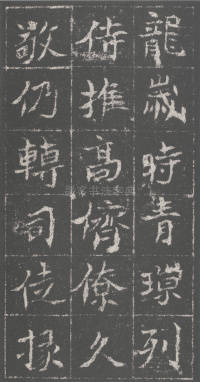 龍歲時青璅列
侍推高儕僚久
敬仍轉司徒掾